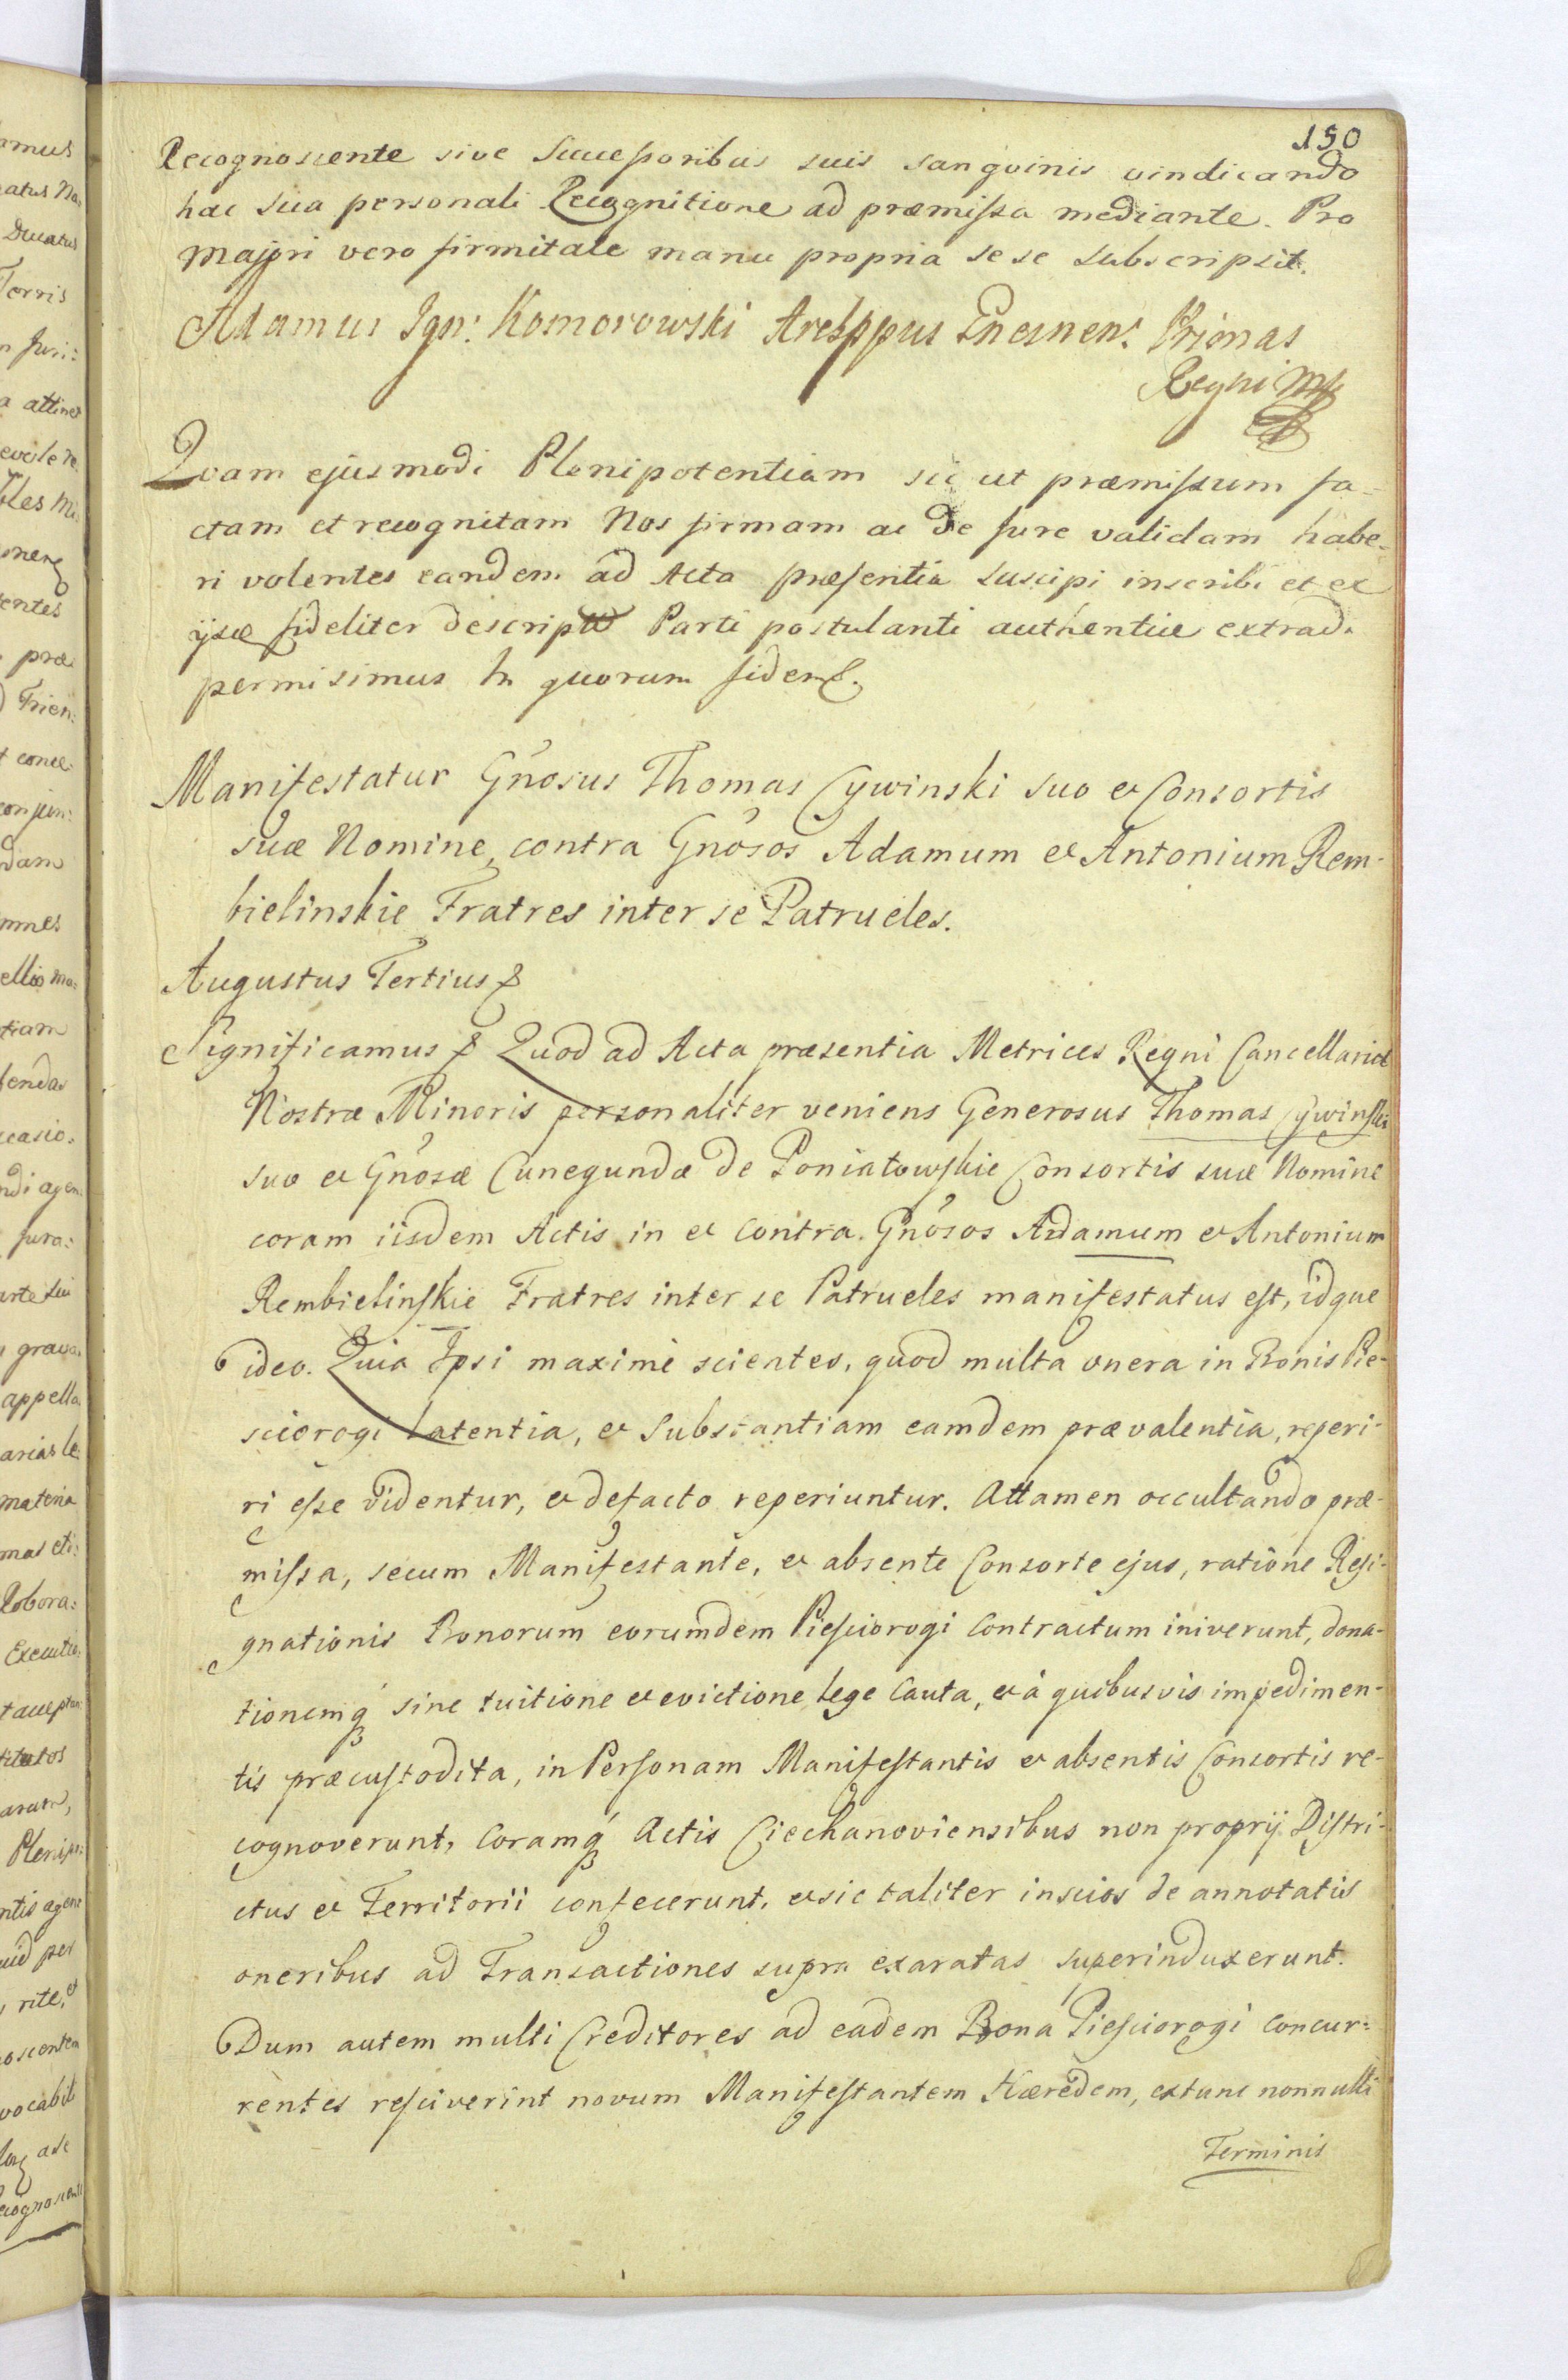 150
Recognoscente sive Successoribus suis sangvinis vindicando
hac sua personali Recognitione ad præmissa mediante. Pro
majori vero firmitate manu propria se se subscripsit.
Adamus Ign: Komorowski Areb̅ppus Gnesnen: Primas
Regni mp
Qvam ejusmodi Plenipotentiam sic ut præmissum fa=
ctam et recognitam Nos firmam ac de Jure validam habe=
ri volentes eandem ad Acta præsentia suscipi inscribi et ex
ijsce fideliter descriptā Parti postulanti authentice extrad.
permisimus In quorum fidem &.
Manifestatur Gn̅osus Thomas Cywinski suo et Consortis
suæ Nomine, contra Gn̅osos Adamum et Antonium Rem-
bielinskie Fratres inter se Patrueles.
Augustus Tertius &
Significamus & Quod ad Acta præsentia Metrices Regni Cancellariæ
Nostræ Minoris personaliter veniens Generosus Thomas Cywinski
suo et Gn̅osæ Cunegundæ de Poniatowskie Consortis suæ Nomine
coram iisdem Actis in et contra Gn̅osos Adamum et Antonium
Rembielinskie Fratres inter se Patrueles manifestatus est, idque
ideo. Quia Ipsi maximè scientes, quod multa onera in Bonis Pie-
sciorogi latentia, et Substantiam eamdem prævalentia, reperi-
ri esse videntur, et defacto reperiuntur. Attamen occultando præ-
missa, secum Manifestante, et absente Consorte ejus, ratione Resi-
gnationis Bonorum eorumdem Piesciorogi Contractum iniverunt, dona-
tionemq́ sine tuitione et evictione lege Cauta, et à quibusvis impedimen-
tis præcustodita, in Personam Manifestantis et absentis Consortis re-
cognoverunt, Coramq́ Actis Ciechanoviensibus non proprij Distri-
ctus et Territorii confecerunt, et sic taliter inscios de annotatis
oneribus ad Transactiones supra exaratas superinduxerunt.
Dum autem multi Creditores ad eadem Bona Piesciorogi concur-
rentes resciverint novum Manifestantem Hæredem, extunc nonnulli
Terminis